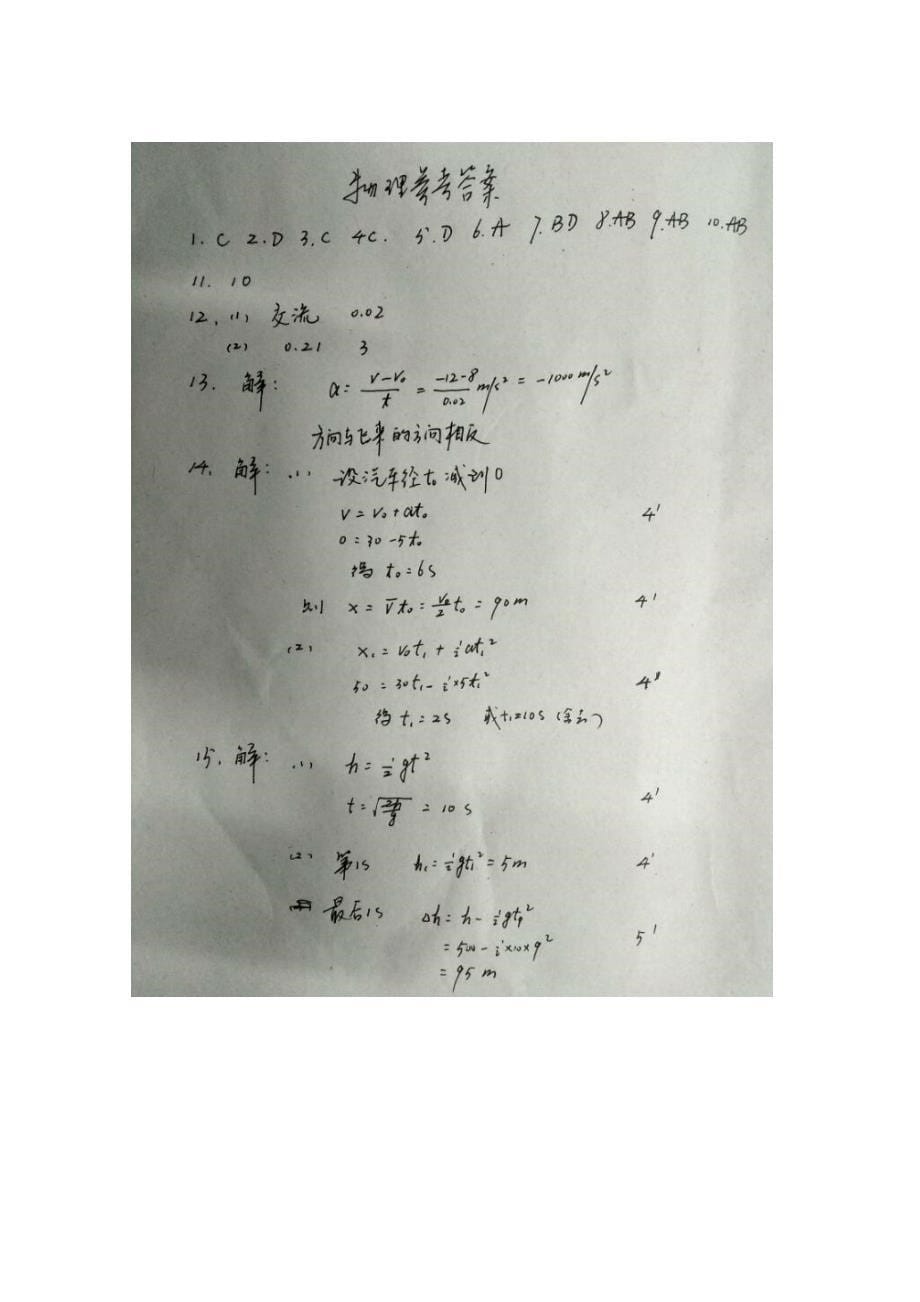 物理参考答案
1. C 2.D 3.C 4C. 5.D 6.A 7.BD 8.AB 9.AB 10.AB
11. 10
12. (1) 交流 0.02
(2) 0.21 3
13. 解: a = (v-v₀)/t = (-12-8)/0.02 m/s² = -1000 m/s²
方向与飞来的方向相反
14. 解: (1) 设汽车经t₀减到0
v = v₀ + at₀ 4'
0 = 30 - 5t₀
得 t₀ = 6s
则 x = v̅t₀ = v₀/2 t₀ = 90m 4'
(2) x₁ = v₀t₁ + ½at₁²
50 = 30t₁ - ½×5t₁² 4'
得 t₁ = 2s 或 t₁=10s (舍去)
15. 解: (1) h = ½gt²
t = √(2h/g) = 10s 4'
(2) 第1s h₁ = ½gt₁² = 5m 4'
最后1s Δh = h - ½gt₉²
= 500 - ½×10×9² 5'
= 95 m